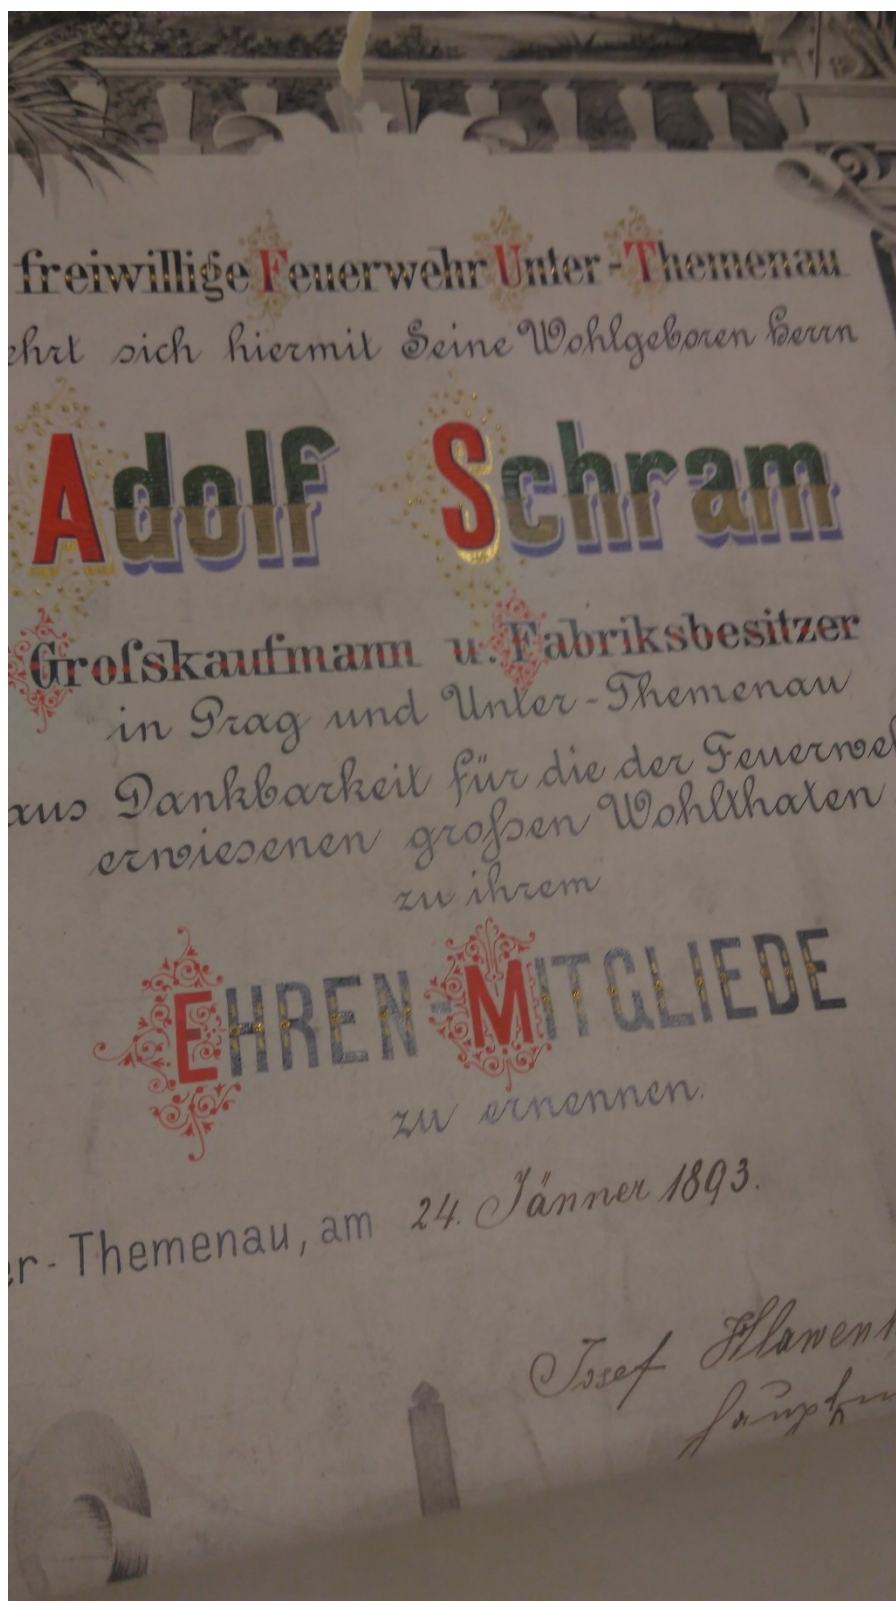 freiwillige Feuerwehr Unter-Themenau
ehrt sich hiermit Seine Wohlgeboren Herrn
Adolf Schram
Grofskaufmann u. Fabriksbesitzer
in Prag und Unter-Themenau
aus Dankbarkeit für die der Feuerwe
erwiesenen großen Wohlthaten
zu ihrem
EHREN-MITGLIEDE
zu ernennen.
er-Themenau, am 24. Jänner 1893.
Josef